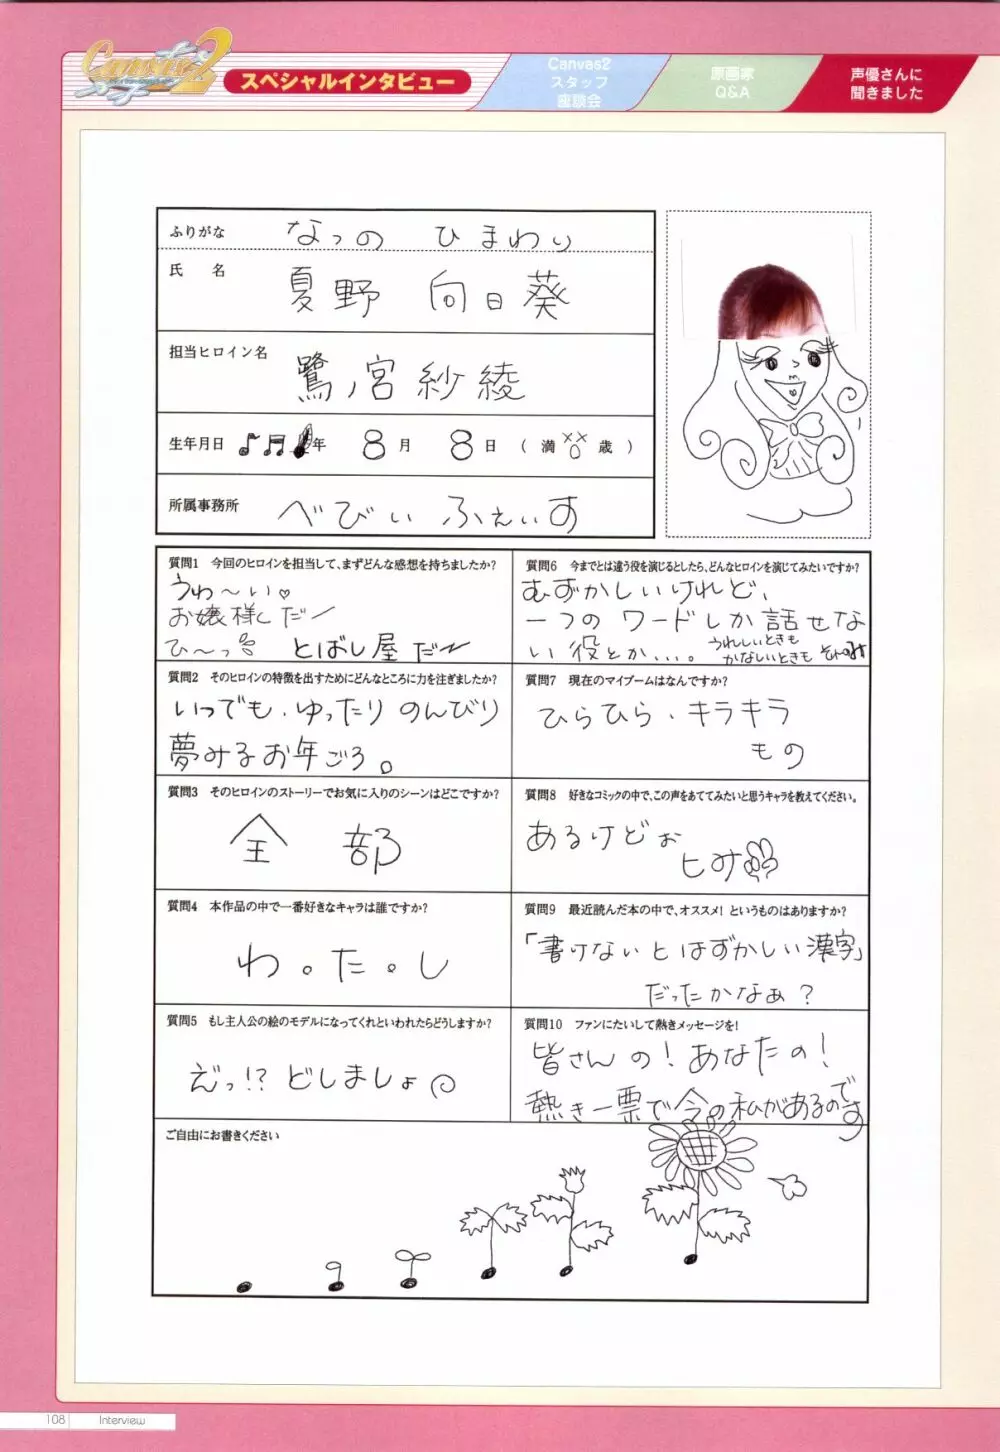 Canvas2
スペシャルインタビュー
Canvas2
スタッフ
座談会
原画家
Q&A
声優さんに
聞きました
ふりがな なつの ひまわり
氏 名 夏野 向日葵
担当ヒロイン名 鷺ノ宮紗綾
生年月日 ♪♬ 年 8月 8日 (満 ×× 歳)
所属事務所 べびぃふぇいす
質問1 今回のヒロインを担当して、まずどんな感想を持ちましたか?
うわ〜い♡
お嬢様だー
ひ〜っ とばし屋だー
質問2 そのヒロインの特徴を出すためにどんなところに力を注ぎましたか?
いつでも、ゆったりのんびり
夢みるお年ごろ。
質問3 そのヒロインのストーリーでお気に入りのシーンはどこですか?
全部
質問4 本作品の中で一番好きなキャラは誰ですか?
わ。た。し
質問5 もし主人公の絵のモデルになってくれといわれたらどうしますか?
えっ!? どしましょ
質問6 今までとは違う役を演じるとしたら、どんなヒロインを演じてみたいですか?
むずかしいけれど、
一つのワードしか話せな
い役とか...。うれしいときも
かなしいときも それのみ
質問7 現在のマイブームはなんですか?
ひらひら、キラキラ
もの
質問8 好きなコミックの中で、この声をあててみたいと思うキャラを教えてください。
あるけどぉ
ヒみ
質問9 最近読んだ本の中で、オススメ! というものはありますか?
「書けないとはずかしい漢字」
だったかなぁ?
質問10 ファンにたいして熱きメッセージを!
皆さんの!あなたの!
熱き一票で今の私があるのです
ご自由にお書きください
108 Interview